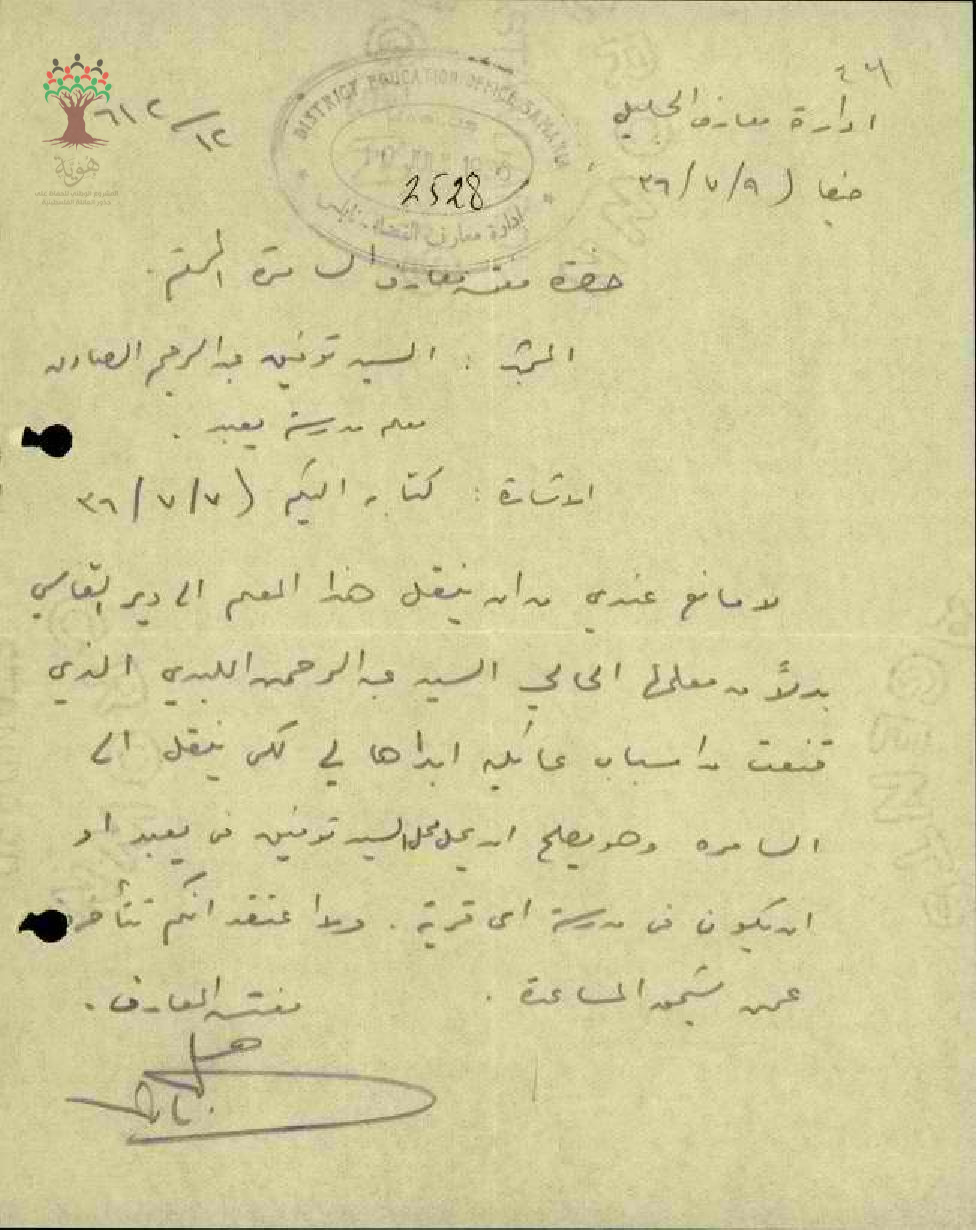 ٤٦
ادارة معارف الجليل
٦١٢/١٢
حيفا ( ٩/ ٧/ ٣٦
DISTRICT EDUCATION OFFICE, SAMARIA
NABLUS
10 JUL 1936
2528
ادارة معارف القضاء - نابلس
هوية
حضرة مفتش معارف السامرة المحترم .
السيد توفيق عبد الرحيم الصادق
معلم مدرسة يعبد .
الاشارة : كتابه اليكم ( ٧/ ٧/ ٣٦
لا مانع عندي من ان ينقل هذا المعلم الى دير القاسي
بدلاً من معلمها الحالي السيد عبد الرحمن اللبدي الذي
قنعت من اسباب عائليه ابداها لي لكي ينقل الى
السامره وهو يصلح ان يحل محل السيد توفيق في يعبد او
ان يكون في مدرسة اى قرية . ولا اعتقد انكم تتأخرون
عمن يستحق المساعدة .
مفتش المعارف .